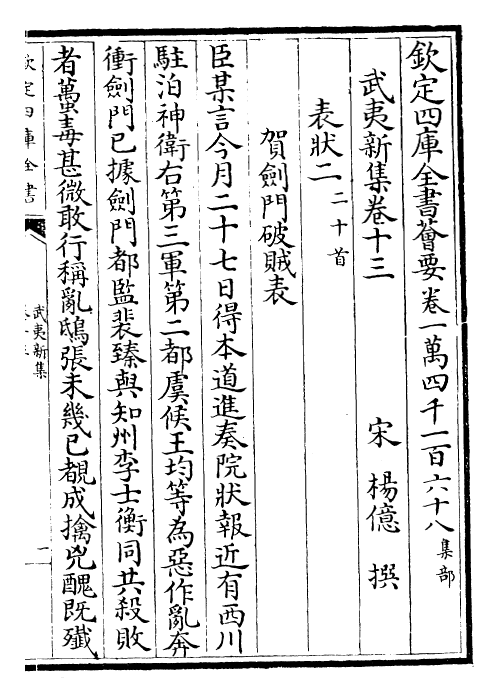 欽定四庫全書薈要卷一萬四千一百六十八集部
武夷新集卷十三
宋楊億撰
表狀二二十首
賀劍門破賊表
臣某言今月二十七日得本道進奏院狀報近有西川
駐泊神衛右第三軍第二都虞候王均等為惡作亂奔
衝劍門已據劍門都監裴臻與知州李士衡同共殺敗
者蠆毒甚微敢行稱亂鴟張未幾已覩成擒兇醜既殱
欽定四庫全書
武夷新集
一